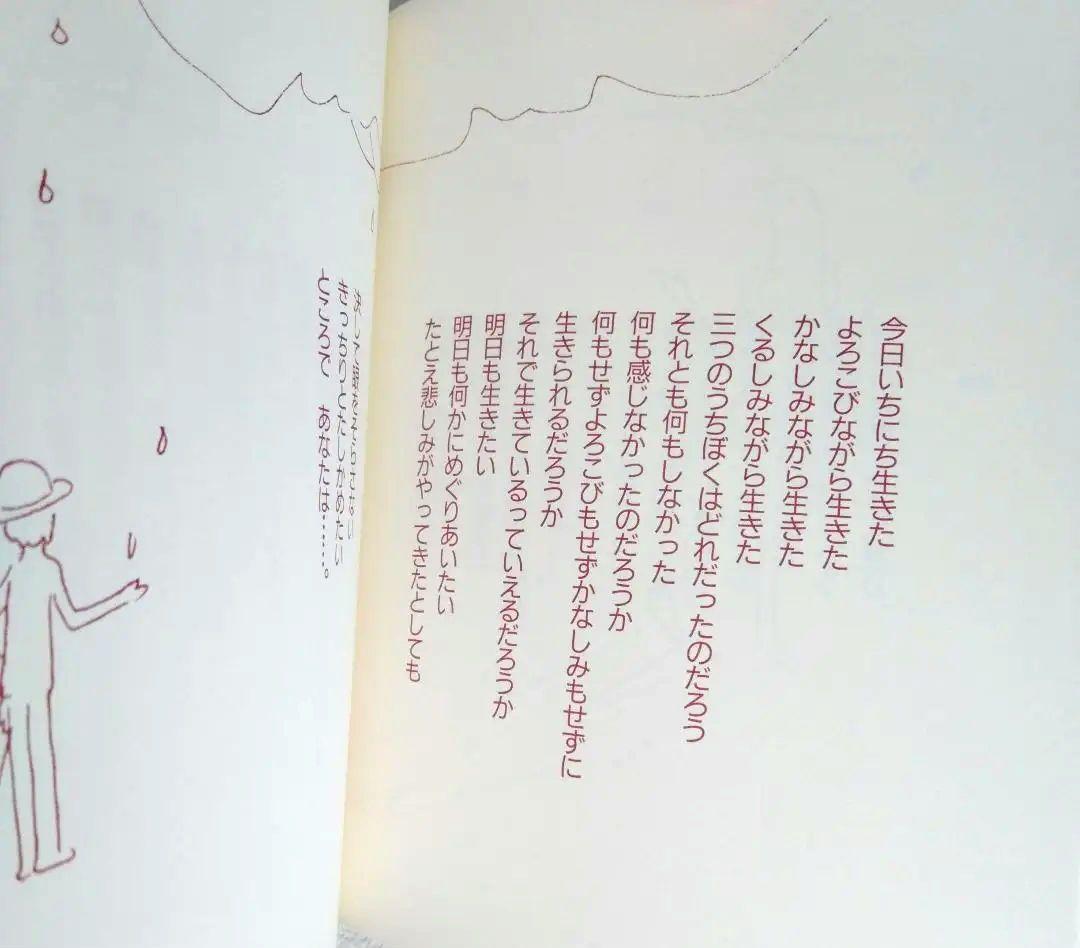 今日いちにち生きた
よろこびながら生きた
かなしみながら生きた
くるしみながら生きた
三つのうちぼくはどれだったのだろう
それとも何もしなかった
何も感じなかったのだろうか
何もせずよろこびもせずかなしみもせずに
生きられるだろうか
それで生きているっていえるだろうか
明日も生きたい
明日も何かにめぐりあいたい
たとえ悲しみがやってきたとしても
きっちりとたしかめたい
ところで　あなたは……。